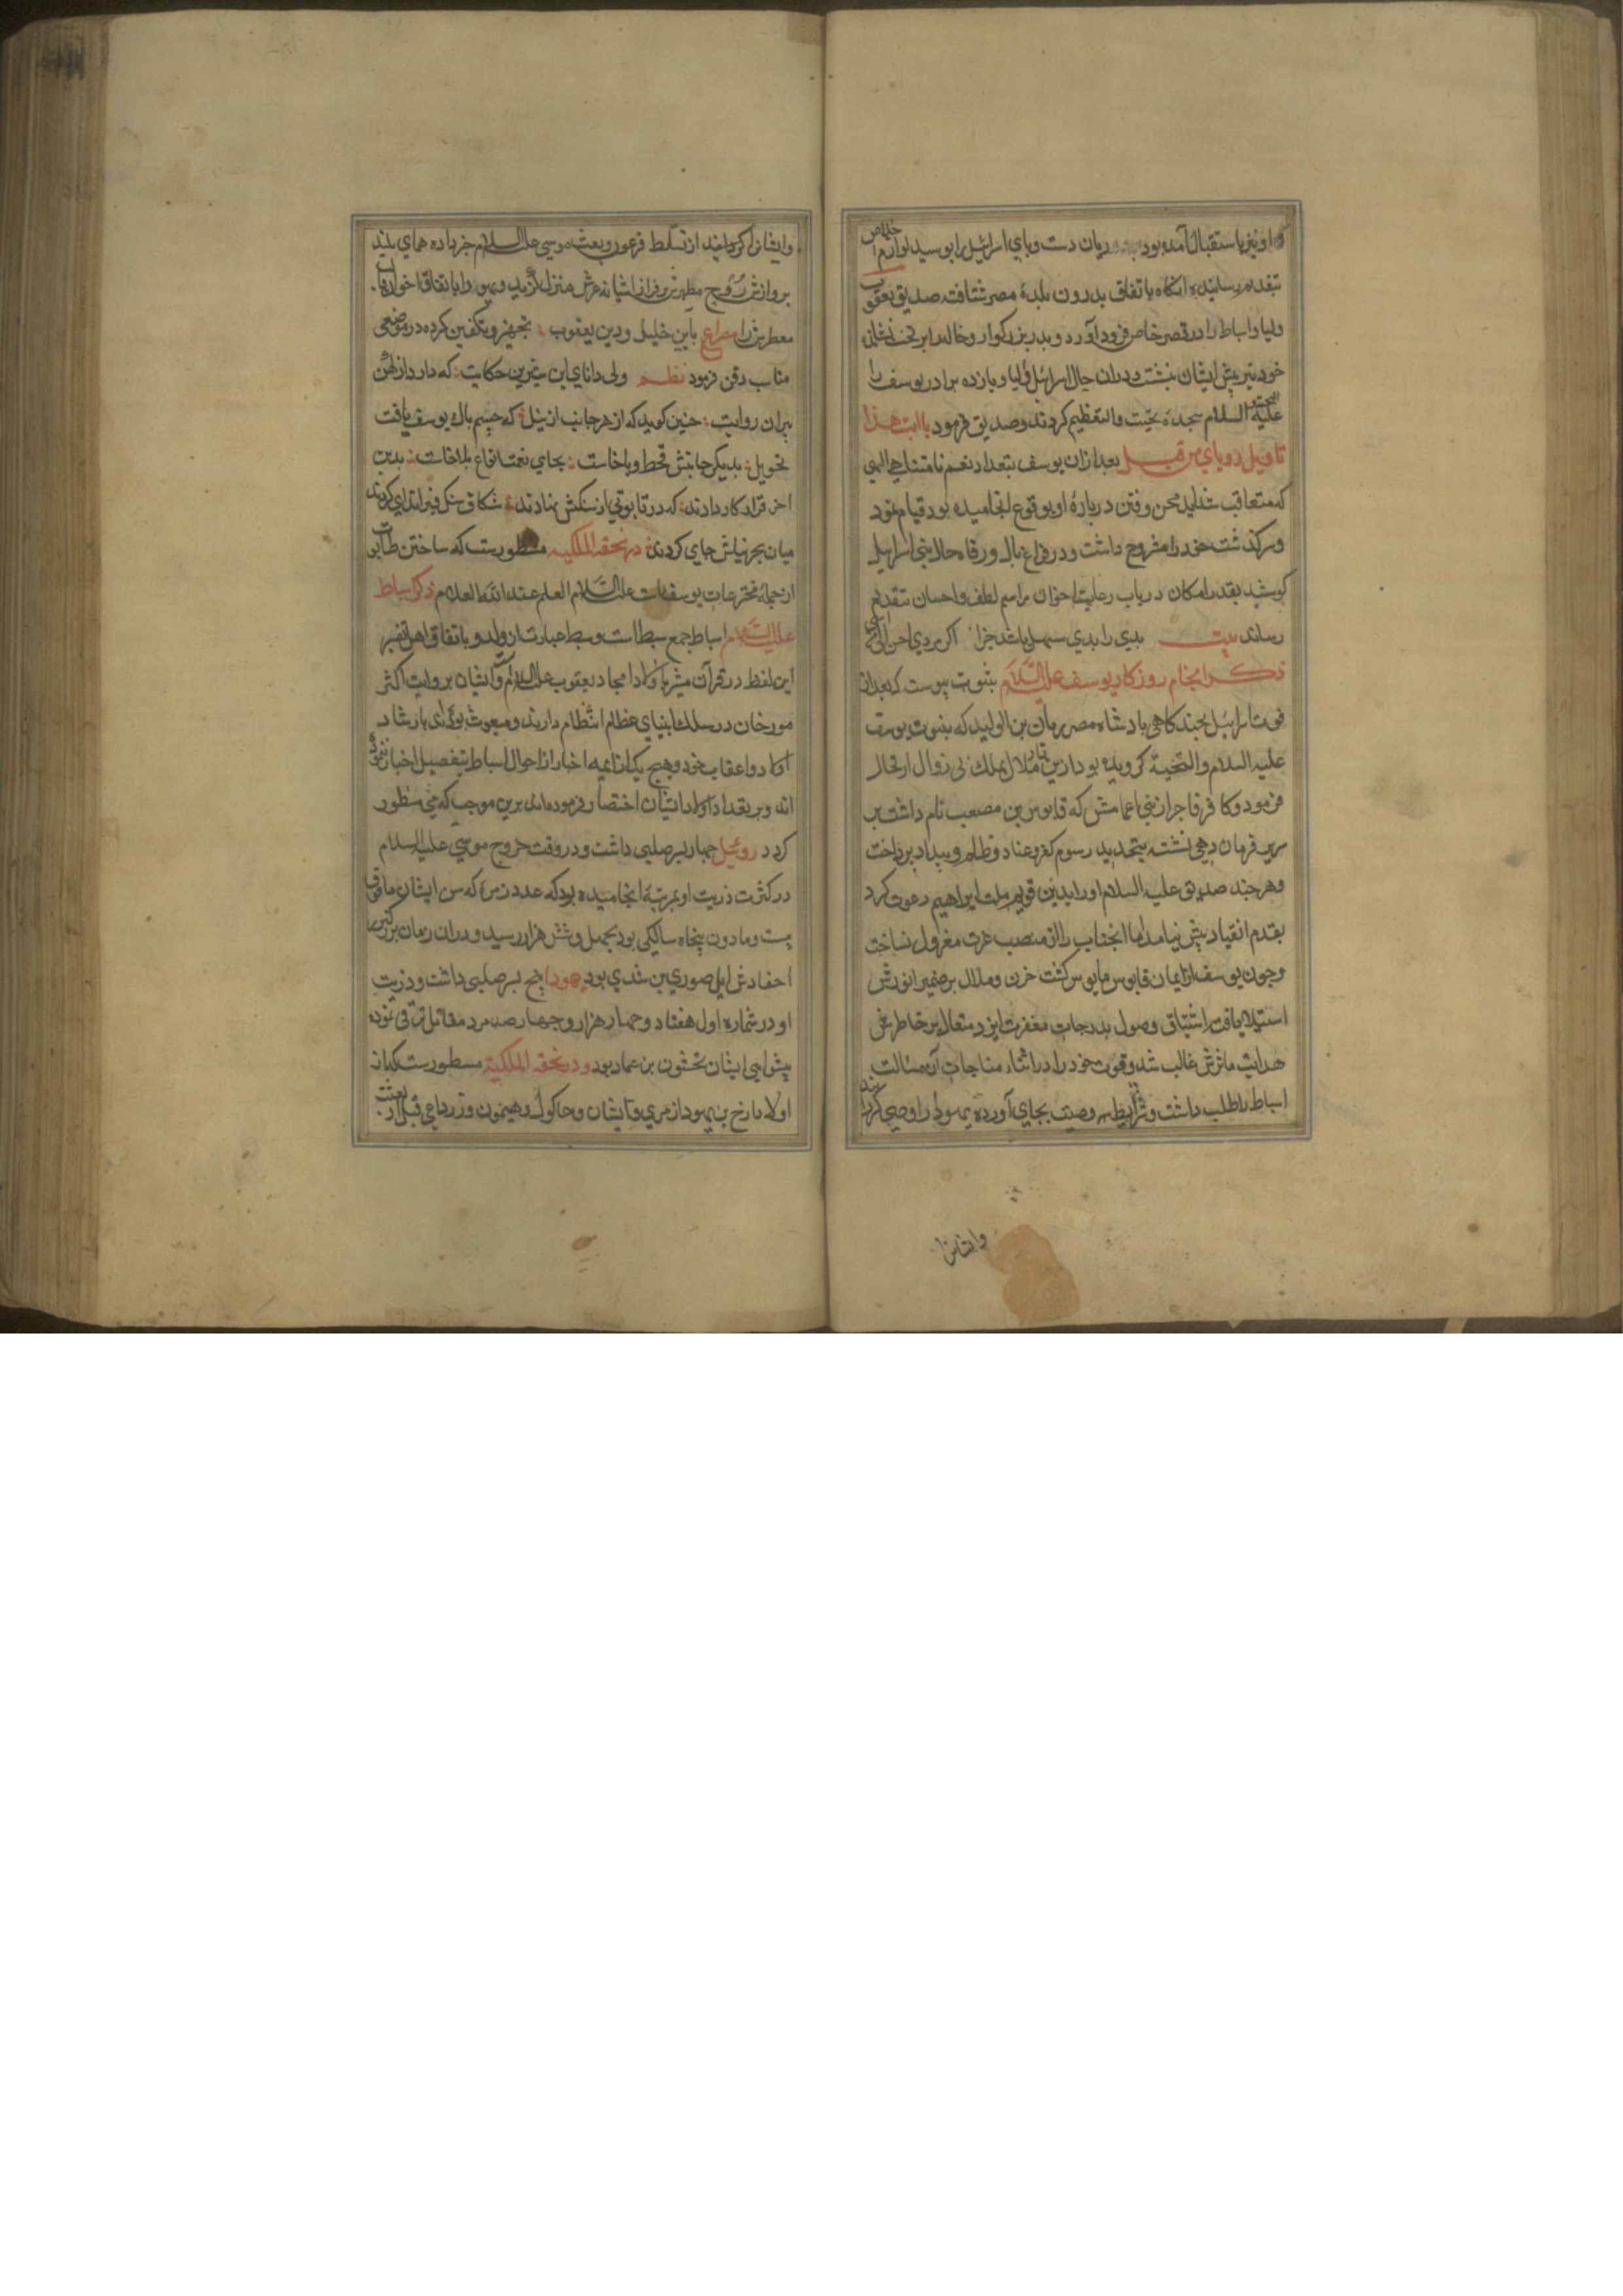 و او نیز باستقبال آمده بود ریان دست و پای اسرائیل را بوسید لوازم اخلاص
بتقدیم رسانیده انکاه باتفاق بدرون بلدهٔ مصر شتافت صدیق یعقوب
ولیا و اسباط را در قصر خاص فرود آورد و پدر بزرکوار و خاله را بر تخت نشانی
خود نیز پیش ایشان بنشست و دران حال اسرائیل و لیا و یازده برادر یوسف را
علیه السلام سجده تحیت والتعظیم کردند و صدیق فرمود یا ابت هذا
تاویل رویای من قبل بعد ازان یوسف بتعداد نعم نامتناهی الهی
که متعاقب شداید محن و فتن دربارهٔ او بوقوع انجامیده بود قیام نمود
و سرکذشت خود را مشروح داشت و در فراغ بال و رفاه حال بنی اسرائیل
کوشید بقدر امکان در باب رعایت اخوان مراسم لطف و احسان بتقدیم
رساند بیت بدی را بدی سهل باشد جزا اکر مردی احسن الی
ذکر انجام روزکار یوسف علیه السلام بثبوت پیوست که بعد از
فوت اسرائیل بچند کاهی پادشاه مصر ریان بن الولید که بنبوت یوسف
علیه السلام والتحیة کرویده بود ازین ملال بملک بی زوال ارتحال
فرمود و کافر فاجر از بنی اعمامش که قابوس بن مصعب نام داشت بر
سریر فرمان دهی نشسته بتجدید رسوم کفر و عناد و ظلم و بیداد پرداخت
و هر چند صدیق علیه السلام او را بدین قویم ملت ابراهیم دعوت کرد
بقدم انقیاد پیش نیامد اما انجناب را از منصب عزت معزول نساخت
و چون یوسف از ایمان قابوس مایوس کشت حزن و ملال بر ضمیر انورش
استیلا یافت اشتیاق وصول بدرجات مغفرت ایزد متعال بر خاطر
هدایت ماثرش غالب شد و فوت خود را در اثناء مناجات مسالت
اسباط را طلب داشت و شرایط وصیت بجای آورده یهودا را وصی کردانید
وایشانرا
وایشانرا کردانید از تسلط فرعون و بعثت موسی علیه السلام خبر داده همای بلند
پرواز روح مطهرش بر فراز اشیانهٔ عرش منزل کزید و یهودا باتفاق اخوان
معطرش را مصراع باین خلیل و دین یعقوب تجهیز و تکفین کرده در موضعی
مناسب دفن فرمود نظم ولی دانای این شیرین حکایت که دارد از کهن
پیران روایت چنین کوید که از هر جانب از نیل که جسم پاک یوسف یافت
تحویل بدیکر جانبش قحط و وبا خاست بجای نعمت انواع بلا خاست بدین
اخر قرار کار دادند که در تابوتی از سنکش نهادند شکاف سنک قیر اندای کردند
میان بحر نیلش جای کردند در تحفة الملکیه مسطورست که ساختن
از جملهٔ مخترعات یوسف است علیه السلام العلم عند الله العلام ذکر اسباط
علیه السلام اسباط جمع سبط است و سبط عبارتست از ولد و باتفاق اهل تفسیر
این لفظ در قرآن مشعر باولاد امجاد یعقوب علیه السلام است و ایشان بروایت اکثر
مورخان در سلک انبیای عظام انتظام دارند و مبعوث بوده اند بارشاد
اولاد و اعقاب خود و هیچ یک از ائمه اخبار از احوال اسباط بتفصیل اخبار ننموده
اند و بر تعداد اولاد ایشان اختصار فرموده اند برین موجب که می منظور
کردد روئیل چهار پسر صلبی داشت و در وقت خروج موسی علیه السلام
در کثرت ذریت او بمرتبهٔ انجامیده بود که عدد زمرهٔ که سن ایشان مافوق
بیست و مادون پنجاه سالکی بود بچهل و شش هزار رسید و دران زمان بزرکترین
احفادش الیصوری بن شدی بود یهودا پنج پسر صلبی داشت و ذریت
او در شماره اول هفتاد و چهار هزار و چهار صد مرد مقاتل ترقی نموده
پیشوایی ایشان نحشون بن عماد بود و در تحفة الملکیة مسطورست که از
اولاد یهودا و قبل از بعثت